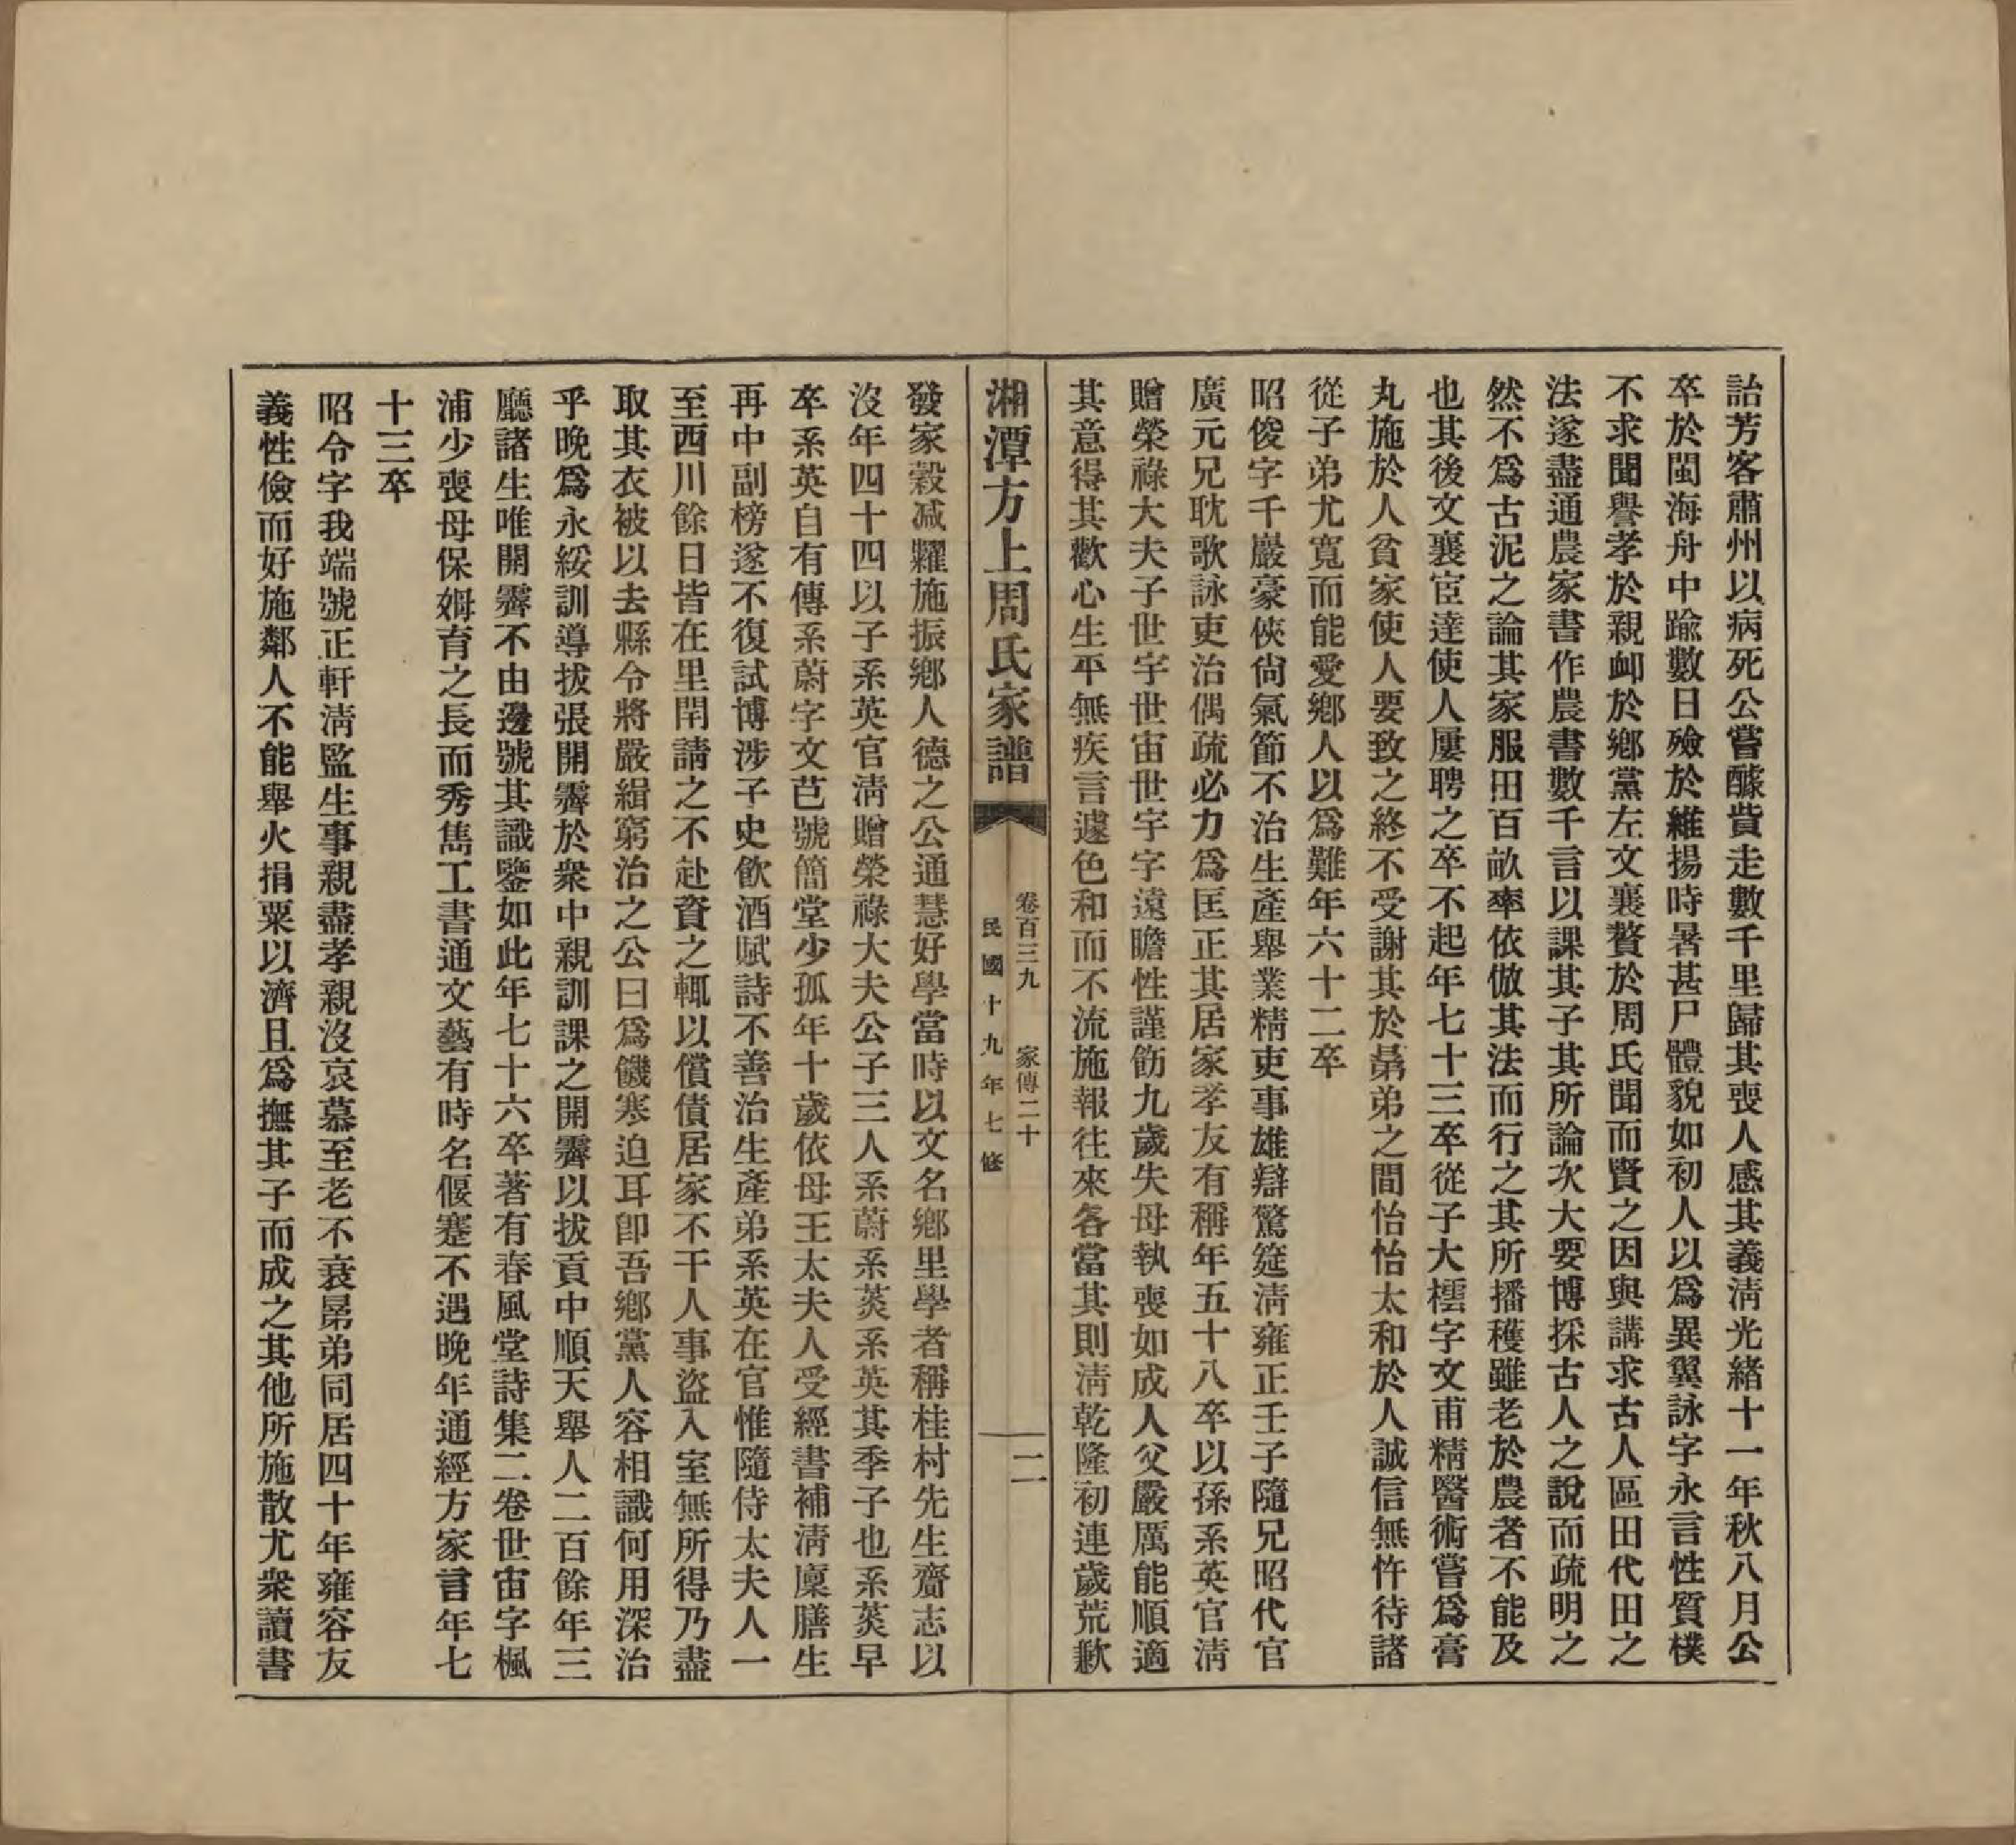 詒芳客肅州以病死公嘗醵貲走數千里歸其喪人感其義淸光緒十一年秋八月公
卒於閩海舟中踰數日殮於維揚時暑甚尸體貌如初人以爲異翼詠字永言性質樸
不求聞譽孝於親卹於鄉黨左文襄贅於周氏聞而賢之因與講求古人區田代田之
法遂盡通農家書作農書數千言以課其子其所論次大要博採古人之說而疏明之
然不爲古泥之論其家服田百畝率依倣其法而行之其所播穫雖老於農者不能及
也其後文襄宦達使人屢聘之卒不起年七十三卒從子大橒字文甫精醫術嘗爲膏
丸施於人貧家使人要致之終不受謝其於晜弟之間怡怡太和於人誠信無忤待諸
從子弟尤寬而能愛鄉人以爲難年六十二卒
昭俊字千巖豪俠尙氣節不治生產舉業精吏事雄辯驚筵淸雍正壬子隨兄昭代官
廣元兄耽歌詠吏治偶疏必力爲匡正其居家孝友有稱年五十八卒以孫系英官淸
贈榮祿大夫子世宇世宙世字字遠瞻性謹飭九歲失母執喪如成人父嚴厲能順適
其意得其歡心生平無疾言遽色和而不流施報往來各當其則淸乾隆初連歲荒歉
湘潭方上周氏家譜
卷百三九 家傳二十
民國十九年七修
二
發家穀減糶施振鄉人德之公通慧好學當時以文名鄉里學者稱桂村先生齎志以
沒年四十四以子系英官淸贈榮祿大夫公子三人系蔚系英系英其季子也系英早
卒系英自有傳系蔚字文芭號簡堂少孤年十歲依母王太夫人受經書補淸廩膳生
再中副榜遂不復試博涉子史飮酒賦詩不善治生產弟系英在官惟隨侍太夫人一
至西川餘日皆在里閈請之不赴資之輒以償債居家不干人事盜入室無所得乃盡
取其衣被以去縣令將嚴緝窮治之公曰爲饑寒迫耳卽吾鄉黨人容相識何用深治
乎晚爲永綏訓導拔張開霽於衆中親訓課之開霽以拔貢中順天舉人二百餘年三
廳諸生唯開霽不由邊號其識鑒如此年七十六卒著有春風堂詩集二卷世宙字楓
浦少喪母保姆育之長而秀雋工書通文藝有時名偃蹇不遇晚年通經方家言年七
十三卒
昭令字我端號正軒淸監生事親盡孝親沒哀慕至老不衰晜弟同居四十年雍容友
義性儉而好施鄰人不能舉火捐粟以濟且爲撫其子而成之其他所施散尤衆讀書